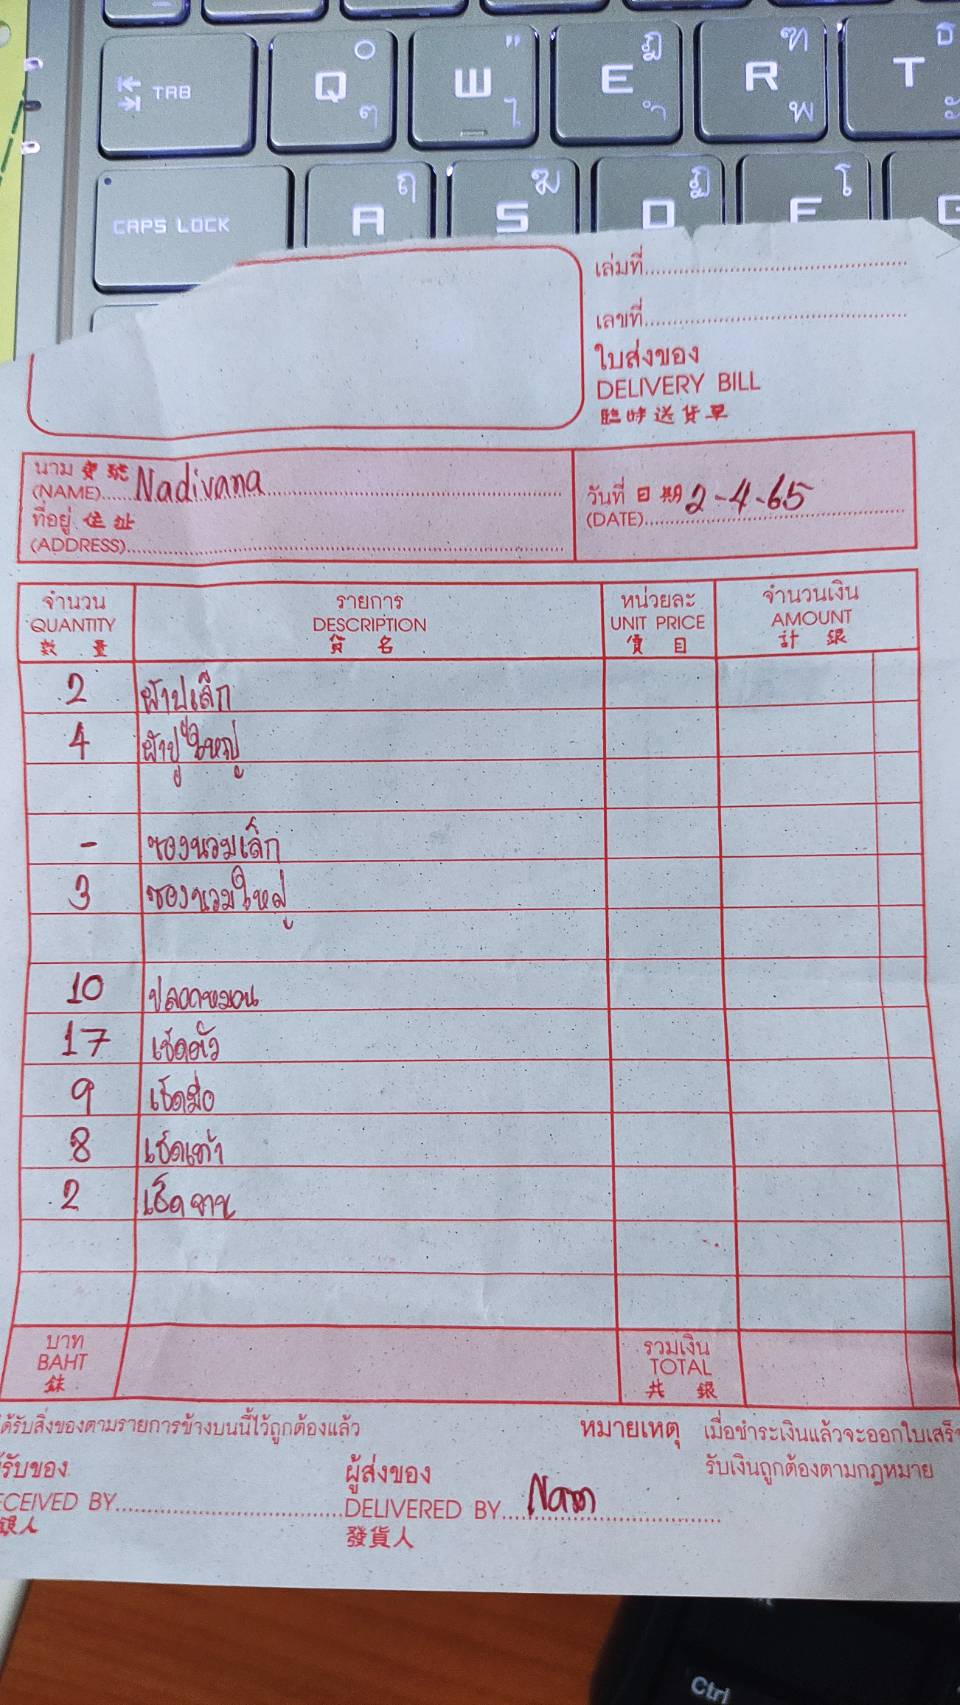 TAB Q ๐ ๆ W " ไ E ฎ ำ R ฑ พ T ธ ะ
CAPS LOCK A ฤ S ฆ D ฏ F โ G
เล่มที่
เลขที่
ใบส่งของ
DELIVERY BILL
臨時送貨單
นาม 寶號 Nadivana
(NAME)
ที่อยู่ 住址
(ADDRESS)
วันที่ 日期 2-4-65
(DATE)
จำนวน รายการ หน่วยละ จำนวนเงิน
QUANTITY DESCRIPTION UNIT PRICE AMOUNT
数量 貨名 價目 計銀
2 ผ้าปูเล็ก
4 ผ้าปูใหญ่
- ซองนวมเล็ก
3 ซองนวมใหญ่
10 ปลอกหมอน
17 เช็ดตัว
9 เช็ดมือ
8 เช็ดเท้า
2 เช็ดจาน
บาท รวมเงิน
BAHT TOTAL
銖 共銀
ได้รับสิ่งของตามรายการข้างบนนี้ไว้ถูกต้องแล้ว หมายเหตุ เมื่อชำระเงินแล้วจะออกใบเสร็จ
รับเงินถูกต้องตามกฎหมาย
รับของ ผู้ส่งของ
CEIVED BY DELIVERED BY Nam
銀人 發貨人
Ctrl